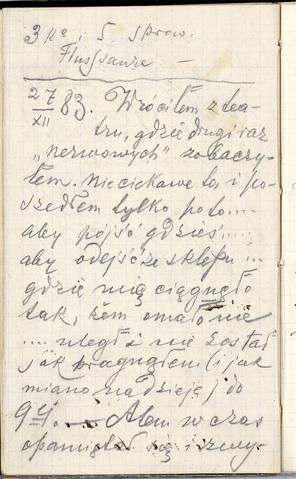 3 Ne i 5. spraw.
Flussäure —
27/XII 83. Wróciłem z tea-
tru, gdzie drugi raz
„nerwowych” zobaczy-
łem. Nieciekawe to, i po-
szedłem tylko poto....
aby pójść gdzieś....
aby odejść ze sklepu...
gdzie mię ciągnęło
tak, żem omało nie
.... uległ i nie został
jak pragnąłem (i jak
miano nadzieję) do
9 g. — Alem w czas
opamiętał się i zwy-